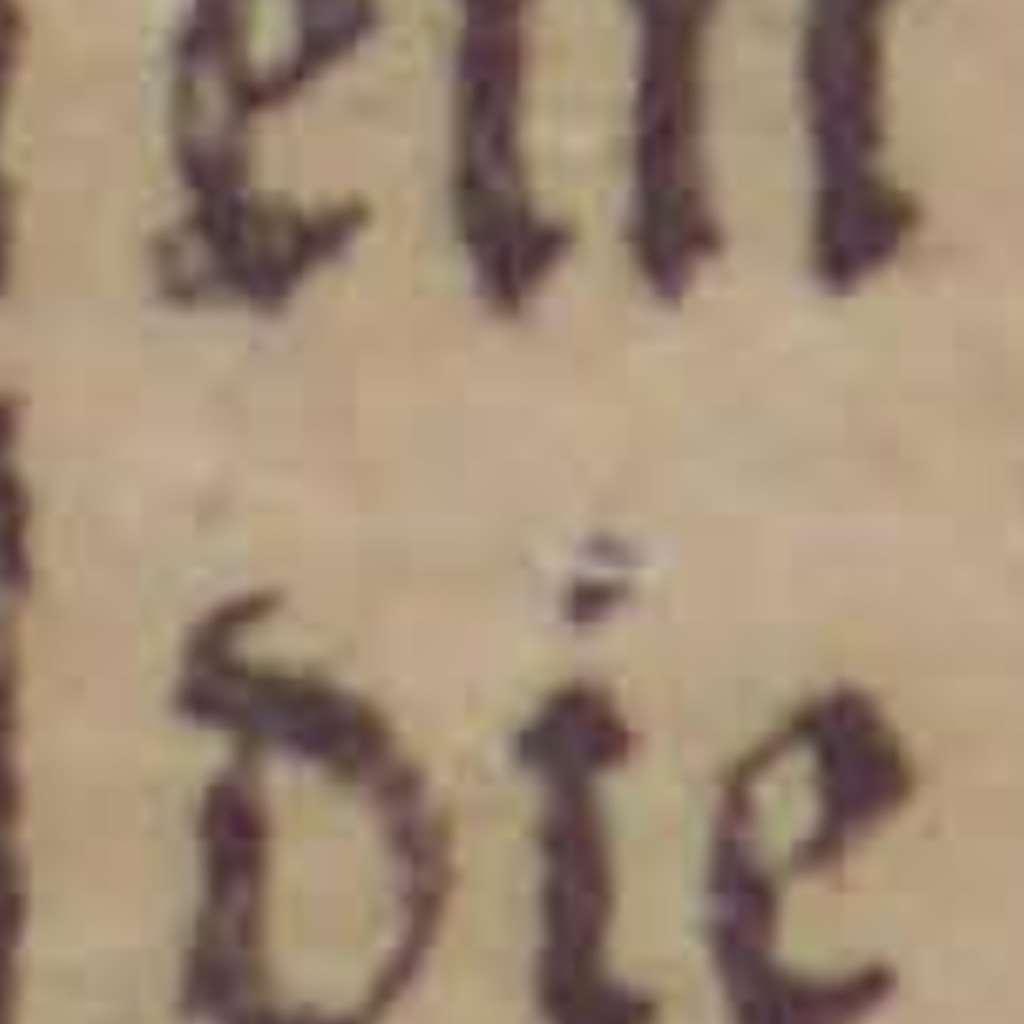 ein
Die